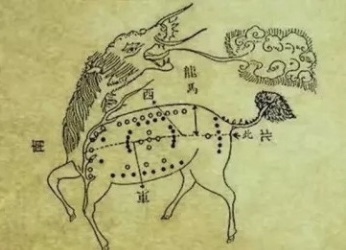 龍馬
西
南
北
東